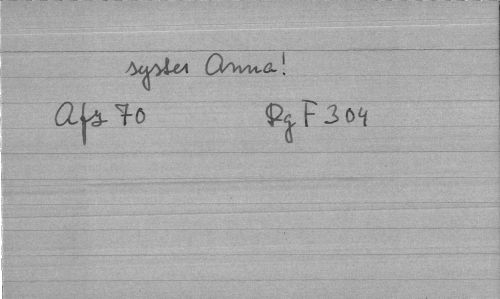 syster Anna!
Afz 70 Rg F 304